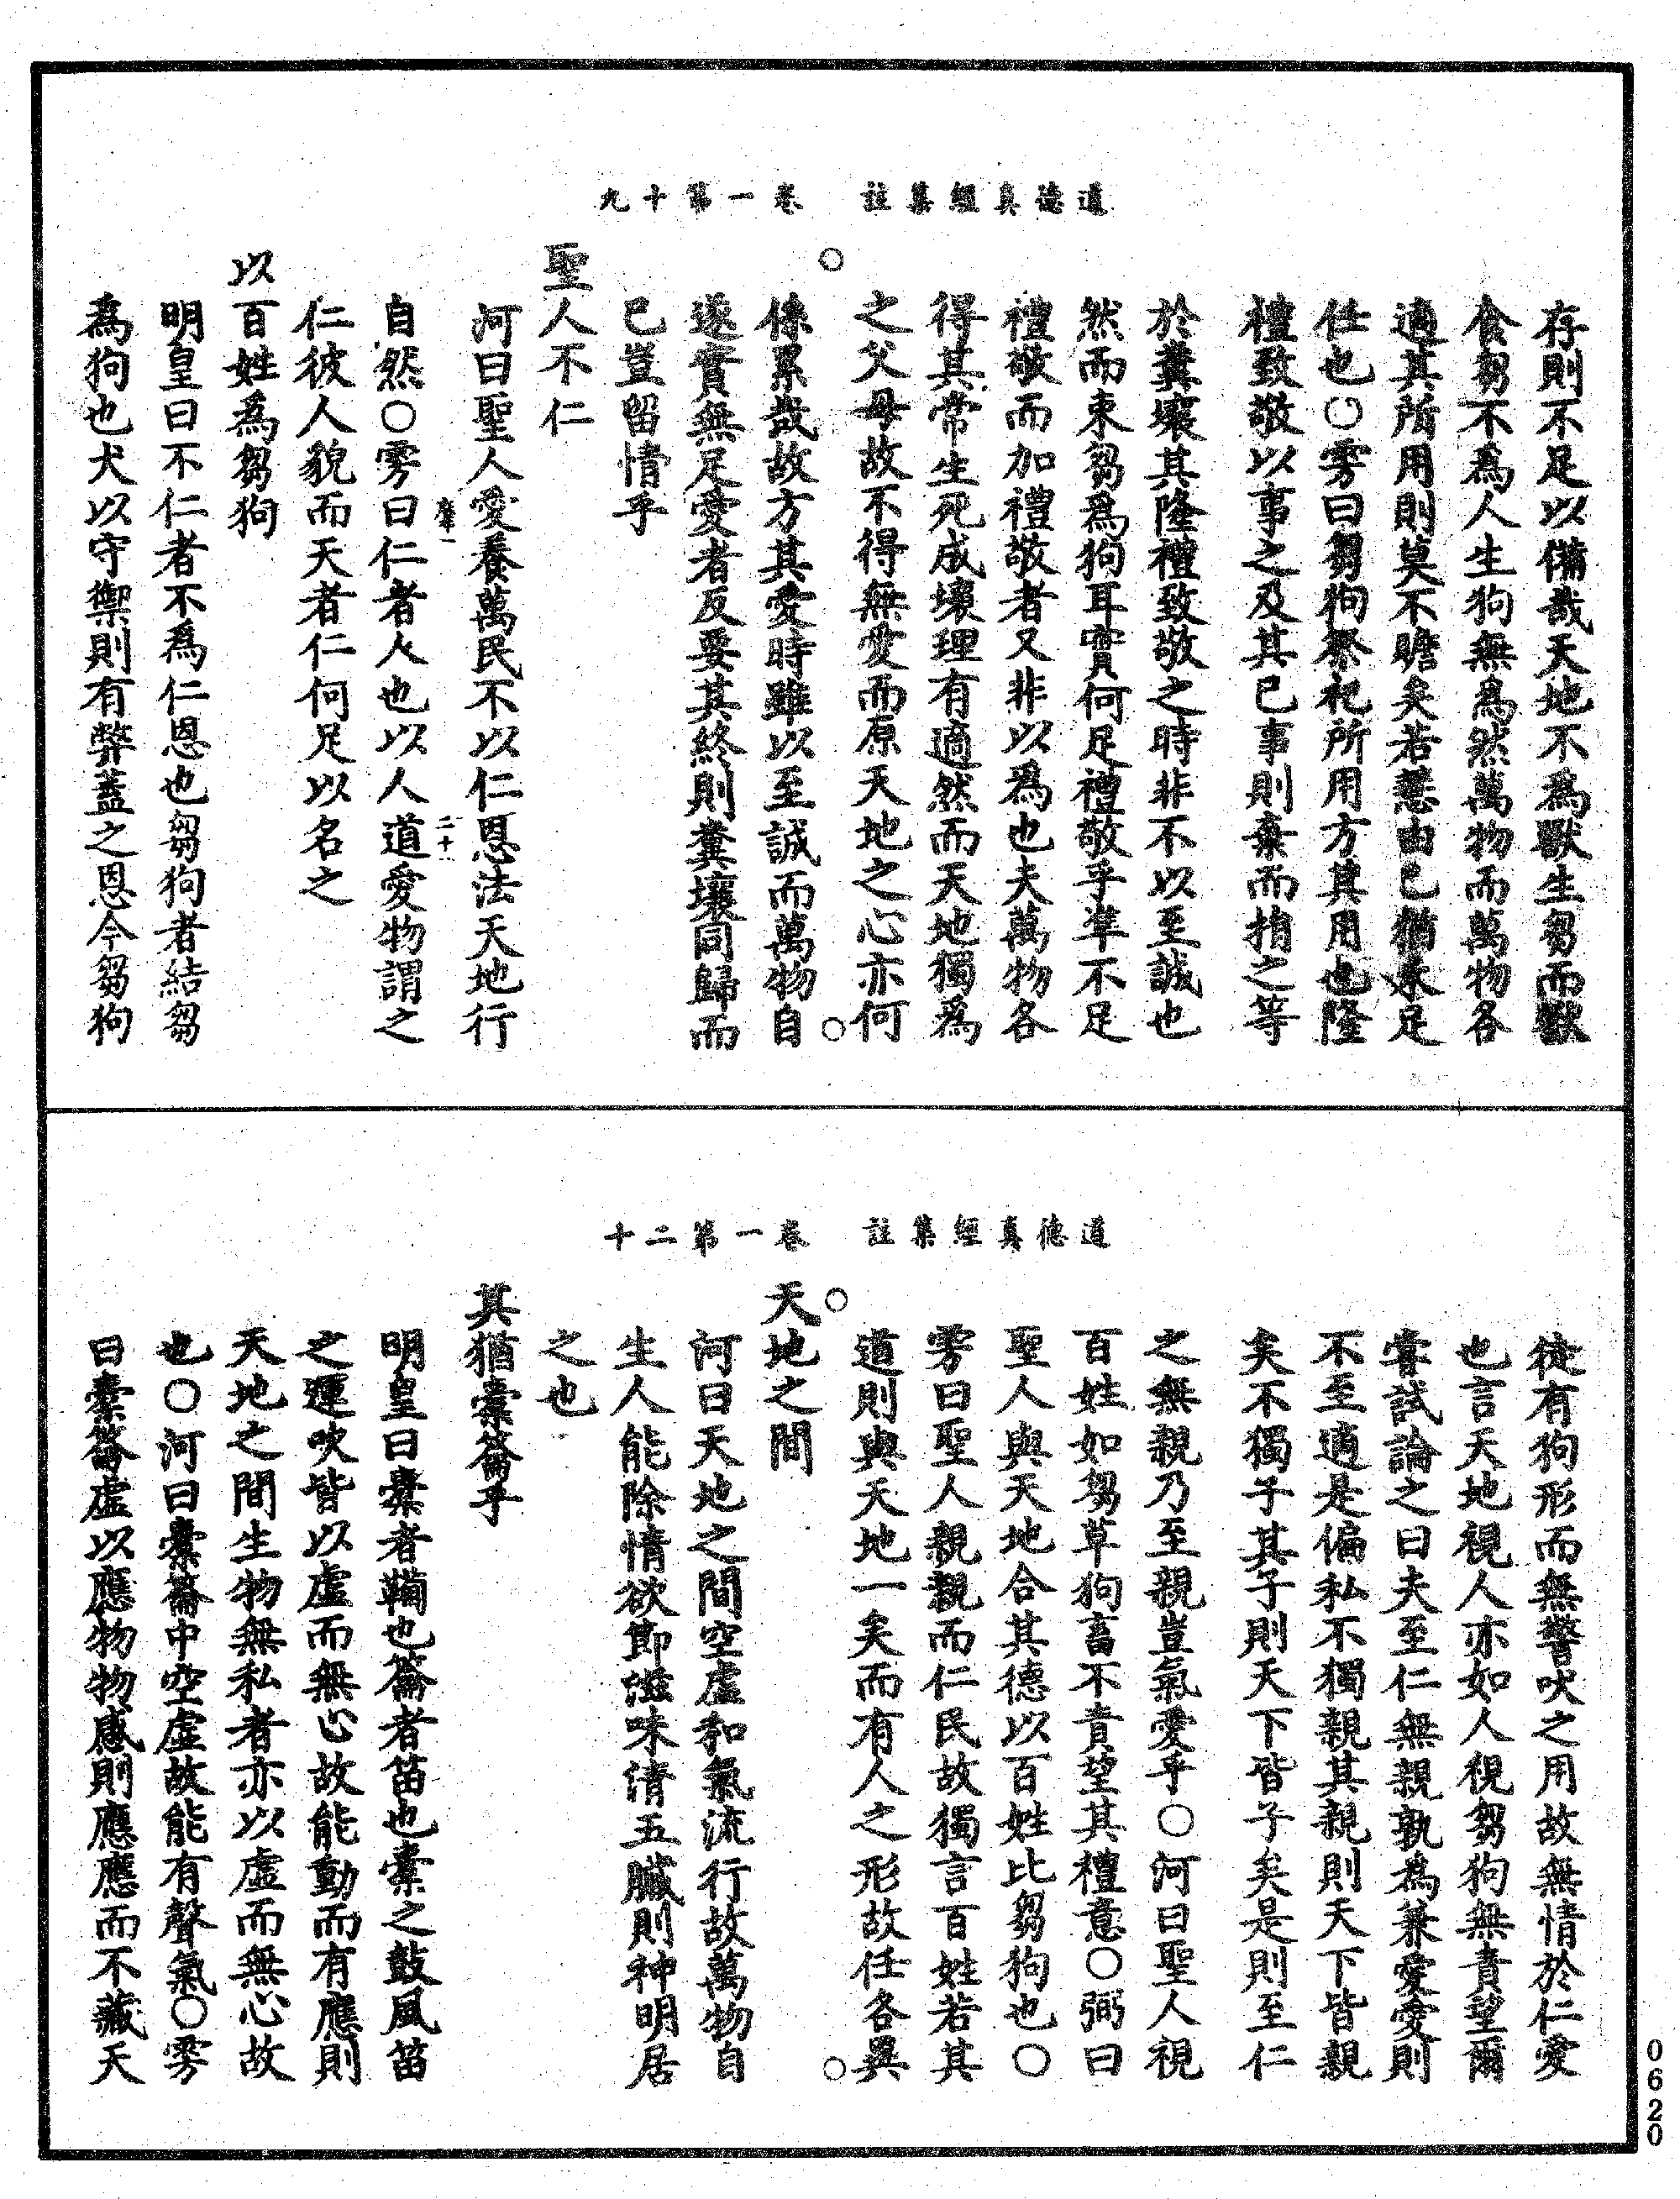 道德真經集註　卷一第十九
存則不足以備哉天地不為獸生芻而獸
食芻不為人生狗無為然萬物而萬物各
適其所用則莫不贍矣若慧由己猶未足
任也○雱曰芻狗祭祀所用方其用也隆
禮致敬以事之及其已事則棄而捐之等
於糞壤其隆禮致敬之時非不以至誠也
然而束芻為狗耳實何足禮敬乎準不足
禮敬而加禮敬者又非以為也夫萬物各
得其常生死成壞理有適然而天地獨為
之父母故不得無愛而原天地之心亦何
係累哉故方其愛時雖以至誠而萬物自
遂實無足愛者反要其終則糞壤同歸而
已豈留情乎
聖人不仁
河曰聖人愛養萬民不以仁恩法天地行
自然○雱曰仁者人也以人道愛物謂之
仁彼人貌而天者仁何足以名之
以百姓為芻狗
明皇曰不仁者不為仁恩也芻狗者結芻
為狗也犬以守禦則有弊蓋之恩今芻狗
道德真經集註　卷一第二十
徒有狗形而無警吠之用故無情於仁愛
也言天地視人亦如人視芻狗無責望爾
嘗試論之曰夫至仁無親孰為兼愛愛則
不至適是偏私不獨親其親則天下皆親
矣不獨子其子則天下皆子矣是則至仁
之無親乃至親豈氣愛乎○河曰聖人視
百姓如芻草狗畜不責望其禮意○弼曰
聖人與天地合其德以百姓比芻狗也○
雱曰聖人親親而仁民故獨言百姓若其
道則與天地一矣而有人之形故任各異
天地之間
河曰天地之間空虛和氣流行故萬物自
生人能除情欲節滋味清五臟則神明居
之也
其猶橐籥乎
明皇曰橐者鞴也籥者笛也橐之鼓風笛
之運吹皆以虛而無心故能動而有應則
天地之間生物無私者亦以虛而無心故
也○河曰橐籥中空虛故能有聲氣○雱
曰橐籥虛以應物物感則應應而不藏天
0620